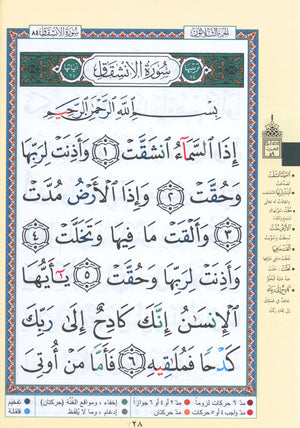 الجزء الثلاثون
سورة الانشقاق ٨٤
سورة الانشقاق
بِسْمِ اللَّهِ الرَّحْمَٰنِ الرَّحِيمِ
إِذَا السَّمَاءُ انشَقَّتْ ١ وَأَذِنَتْ لِرَبِّهَا
وَحُقَّتْ ٢ وَإِذَا الْأَرْضُ مُدَّتْ
٣ وَأَلْقَتْ مَا فِيهَا وَتَخَلَّتْ ٤
وَأَذِنَتْ لِرَبِّهَا وَحُقَّتْ ٥ يَٰأَيُّهَا
الْإِنسَٰنُ إِنَّكَ كَادِحٌ إِلَىٰ رَبِّكَ
كَدْحًا فَمُلَٰقِيهِ ٦ فَأَمَّا مَنْ أُوتِيَ
مدّ ٦ حركات لزوماً مدّ ٢ أو ٤ أو ٦ جوازاً إخفاء، ومواقع الغنّة (حركتان) تفخيم
مدّ واجب ٤ أو ٥ حركات مدّ حركتان إدغام، وما لا يُلفظ قلقلة
٢٨